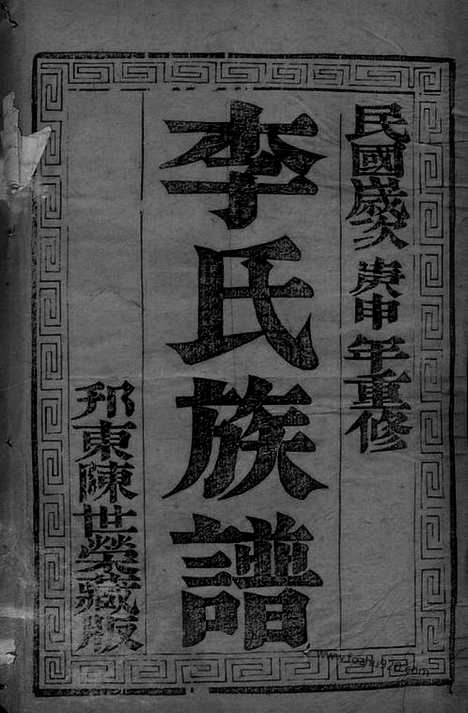 民國歲次庚申年重修
李氏族譜
邦東陳世榮藏版